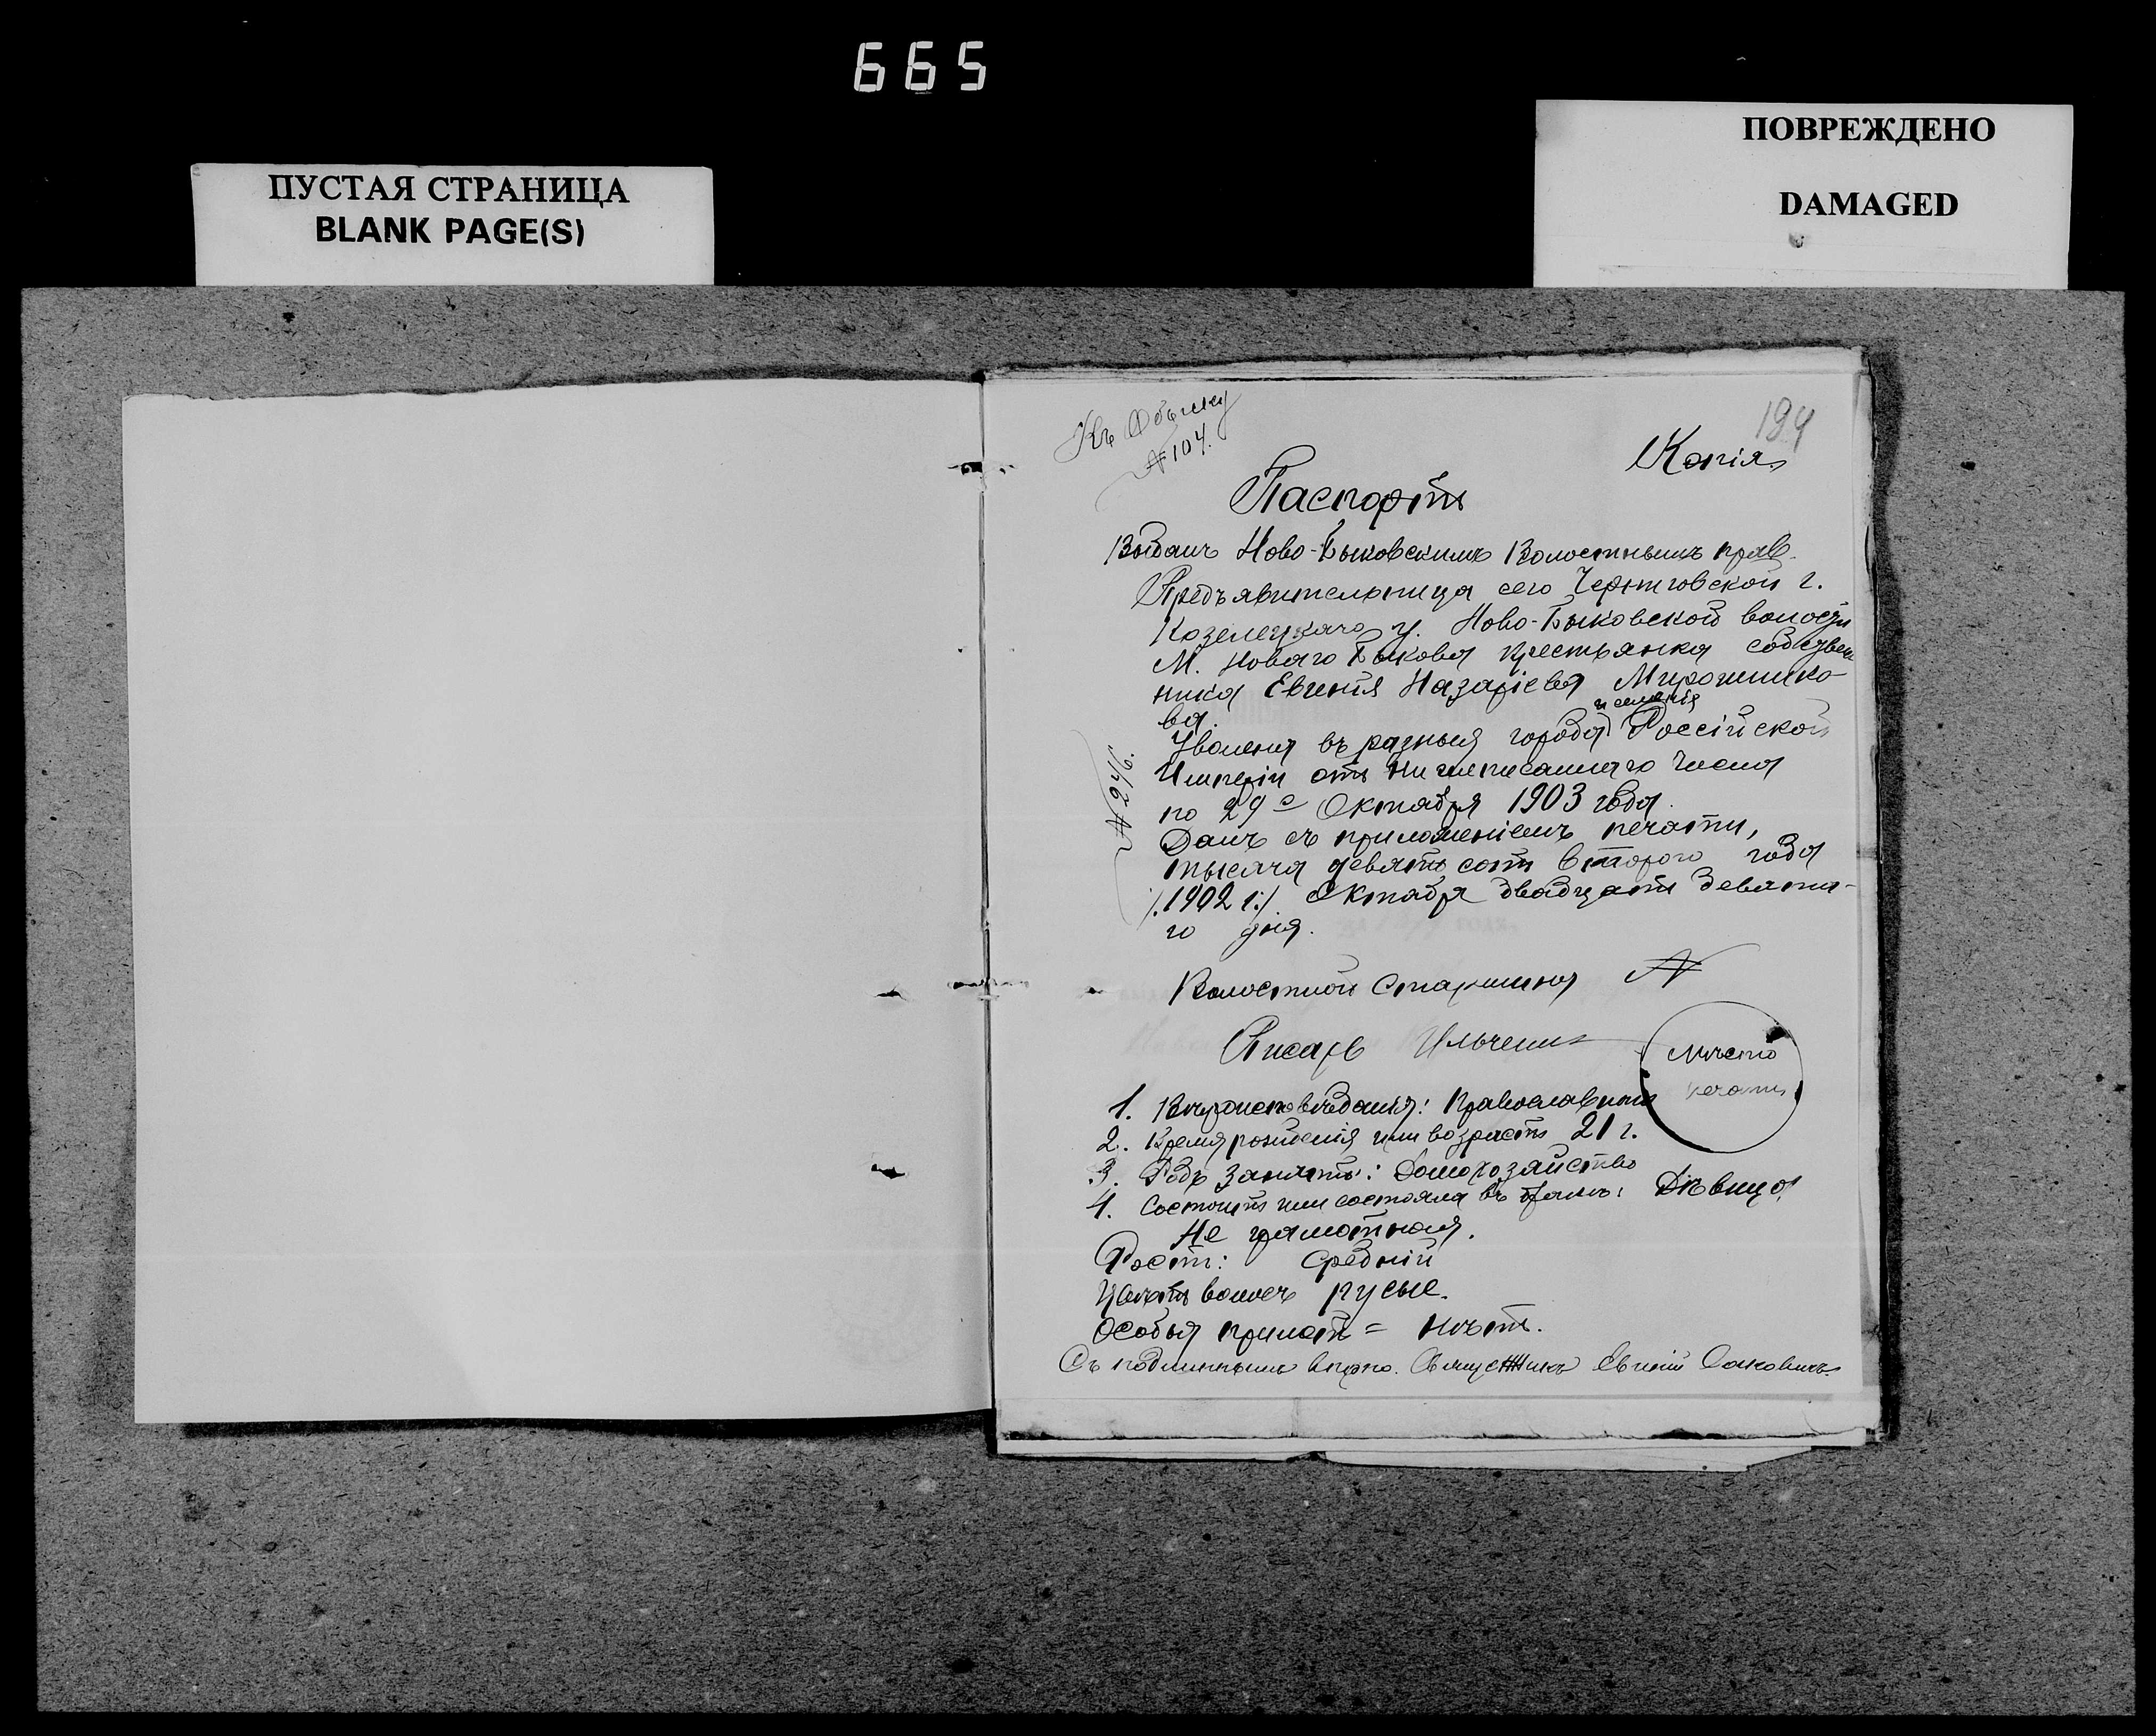 665
ПУСТАЯ СТРАНИЦА
BLANK PAGE(S)
ПОВРЕЖДЕНО
DAMAGED
194
Къ Обыску
№ 104.
Копія
Паспортъ
Выданъ Ново-Быковскимъ Волостнымъ прав.
Предъявительница сего Черниговской г.
Козелецкаго у. Ново-Быковской волости
М. Новаго Быкова крестьянка собствен
ника Евгенія Назаріева Мирошнико-
ва.
и селенія
Уволена въ разныя города Россійской
Имперіи отъ нижеписаннаго числа
по 29е Октября 1903 года.
Данъ съ приложеніемъ печати,
тысяча девятьсотъ второго года
/:1902 г:/ Октября двадцать девята-
го дня.
№ 246.
Волостной Старшина
Писарь Ильченко
Мѣсто
печати
1. Вѣроисповѣданія: Православной
2. Время рожденія или возрастъ 21 г.
3. Родъ занятій: Домохозяйство
4. Состоитъ или состояла въ бракѣ: Дѣвица
Не грамотная.
Ростъ: Средній
Цвѣтъ волосъ русые.
Особыя примѣт = нѣтъ.
Съ подлиннымъ вѣрно. Священникъ Евгеній